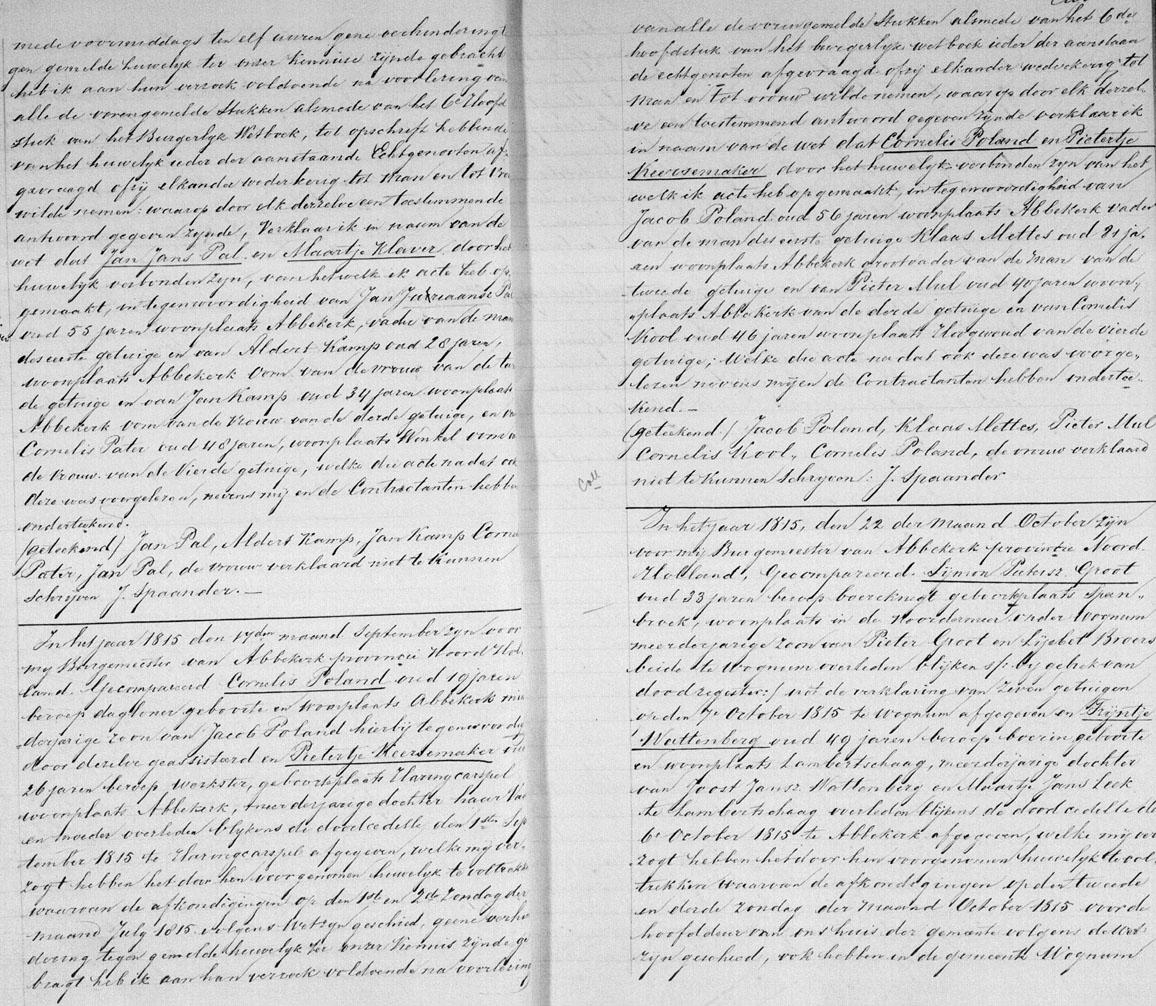 mede voormiddags ten elf uuren gene verhindering te
gen gemelde huwelyk ter onzer kennisse zynde gebracht
heb ik aan hun verzoek voldoende na voorlezing van
alle de vorengemelde Stukken alsmede van het 6e Hoofd
stuk van het Burgerlyk Wetboek, tot opschrift hebbende
van het huwelyk ieder der aanstaande Echtgenooten af-
gevraagd ofzij elkander wederkeerig tot Man en tot Vrou
wilde nemen: waarop door elk derzelve een toestemmende
antwoord gegeven zynde, Verklaar ik in naam van de
wet dat Jan Jans Pal en Maartje Klaver door het
huwelyk verbonden zyn, van hetwelk ik acte heb op
gemaakt, in tegenwoordigheid van Jan Jurriaansz Pal
oud 55 jaren woonplaats Abbekerk, vader van de man
des eerste getuige en van Aldert Kamp oud 28 jaren,
woonplaats Abbekerk oom van de vrouw van de twe
de getuige en van Jan Kamp oud 34 jaren woonplaats
Abbekerk oom van de vrouw van de derde getuige, en van
Cornelis Pater oud 48 jaren, woonplaats Winkel oom van
de vrouw van de Vierde getuige, welke die acte nadat ook
deze was voorgelezen, nevens mij en de Contractanten hebben
onderteekend.
(geteekend) Jan Pal, Aldert Kamp, Jan Kamp Corne
Pater, Jan Pal, de vrouw verklaard niet te kunnen
Schrijven J. Spaander. —
In het jaar 1815 den 17den maand September zyn voor
my Burgemeester van Abbekerk provincie Noord Hol
land. Gecompareerd Cornelis Poland oud 19 jaren
beroep dagloner geboorte en woonplaats Abbekerk min
derjarige zoon van Jacob Poland hierbij tegenwoordig
door dezelve geassisteerd en Pietertje Keersemaker oud
26 jaren beroep werkster, geboorteplaats Haringcarspel
woonplaats Abbekerk, meerderjarige dochter haar Vader
en moeder overleden blykens de doodcedelle den 1sten Sep
tember 1815 te Haringcarspel afgegeven, welke my ver-
zogt hebben het door hen voorgenomen huwelyk te voltrekken
waarvan de afkondigingen op den 1ste en 2de Zondag der
maand July 1815 volgens Wet zyn geschied, geene verhin
dering tegen gemelde huwelyk ter onzer Kennis zynde ge
bragt heb ik aan hun verzoek voldoende na voorlezing
Coll
van alle de vorengemelde Stukken alsmede van het 6de
hoofdstuk van het burgerlyk wetboek ieder der aanstaan
de echtgenoten afgevraagd ofzij elkander wederkerig tot
Man en tot vrouw wilde nemen, waarop door elk derzel-
ve een toestemmend antwoord gegeven zynde verklaar ik
in naam van de wet dat Cornelis Poland en Pietertje
Keersemaker door het huwelyk verbonden zyn van het
welk ik acte heb opgemaakt, in tegenwoordigheid van
Jacob Poland oud 56 jaren woonplaats Abbekerk vader
van de man des eerste getuige Klaas Mettes oud 21 ja-
ren woonplaats Abbekerk grootvader van de man van de
tweede getuige en van Pieter Mul oud 40 jaren woon-
plaats Abbekerk van de derde getuige en van Cornelis
Kool oud 46 jaren woonplaats Hoogwoud van de vierde
getuige; Welke die acte nadat ook deze was voorge-
lezen nevens mij en de Contractanten hebben ondertee-
kend. —
(geteekend) Jacob Poland, Klaas Mettes, Pieter Mul
Cornelis Kool, Cornelis Poland, de vrouw verklaard
niet te kunnen Schryven: J. Spaander
In het jaar 1815, den 22 der Maand October zyn
voor my Burgemeester van Abbekerk provincie Noord
Holland, Gecompareerd Symon Pietersz. Groot
oud 33 jaren beroep boereknegt geboorteplaats Span-
broek, woonplaats in de Noordermeer onder Wognum
meerderjarige zoon van Pieter Groot en Lijsebet Broers
beide te Wognum overleden blijken s/: by gebrek van
doodregister:/ uit de verklaring van Zeven getuigen
op den 7e October 1815 te Wognum afgegeven en Trijntje
Wattenberg oud 49 jaren beroep boerin geboorte
en woonplaats Lambertschaag, meerderjarige dochter
van Joost Jansz Wattenberg en Maartje Jans Leek
te Lambertschaag overleden blijkens de doodcedelle de
6e October 1815 te Abbekerk afgegeven, welke my ver
zogt hebben het door hen voorgenomen huwelyk te vol
trekken waarvan de afkondigingen op den tweede
en derde Zondag der Maand October 1815 voor de
hoofddeur van ons huis der gemeente volgens de wet
zyn geschied, ook hebben in de gemeente Wognum